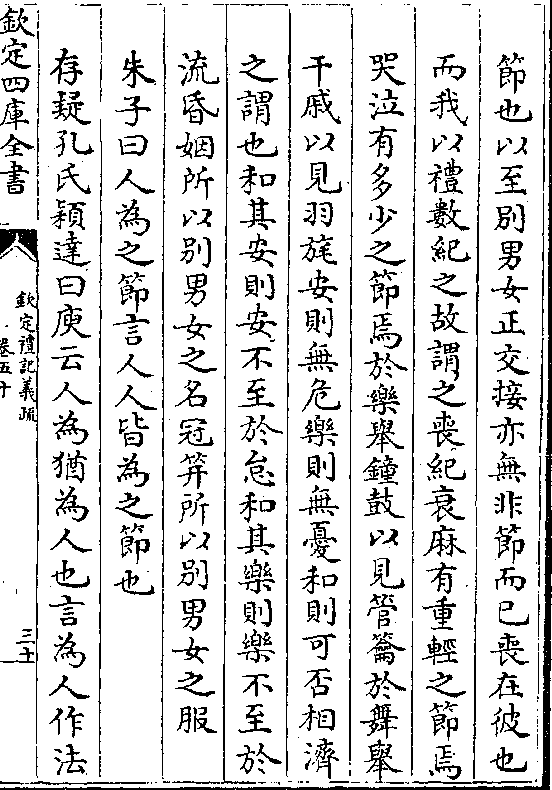 節也以至別男女正交接亦無非節而已喪在彼也
而我以禮數紀之故謂之喪紀衰麻有重輕之節焉
哭泣有多少之節焉於樂舉鐘鼓以見管籥於舞舉
干戚以見羽旄安則無危樂則無憂和則可否相濟
之謂也和其安則安不至於怠和其樂則樂不至於
流昏姻所以別男女之名冠笄所以別男女之服
朱子曰人為之節言人人皆為之節也
存疑孔氏穎達曰庾云人為猶為人也言為人作法
欽定四庫全書
欽定禮記義疏
卷五十
三十